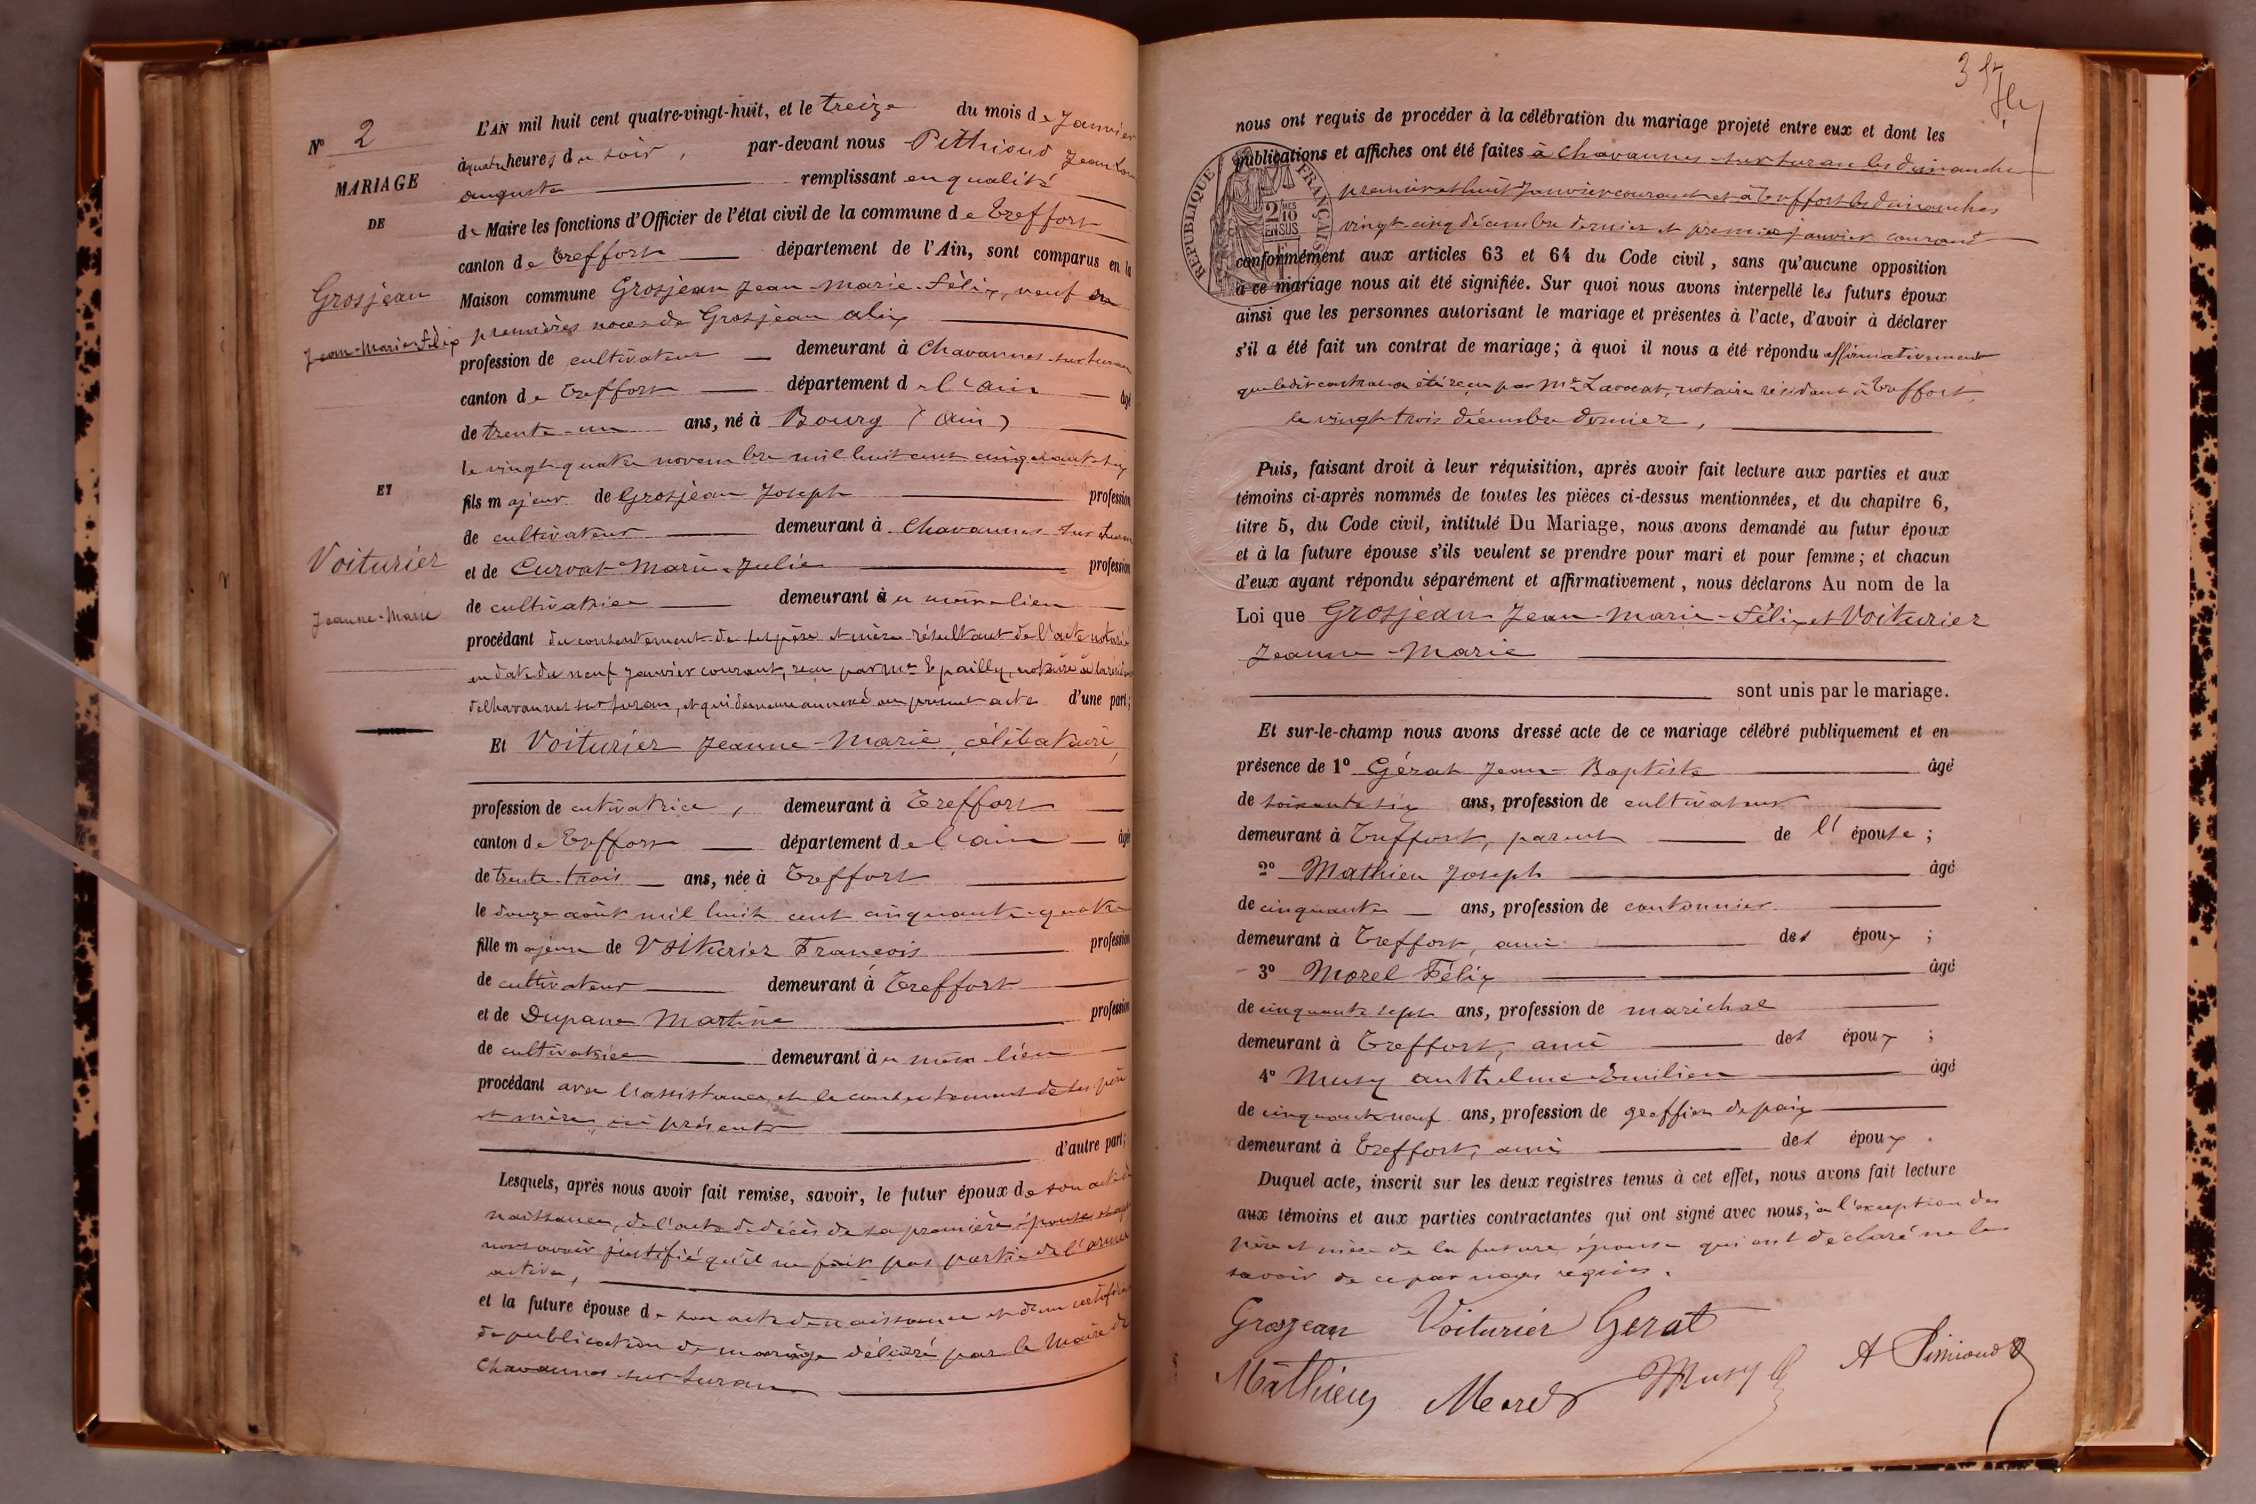 N° 2
MARIAGE
DE
Grosjean
Jean-Marie Félix
ET
Voiturier
Jeanne-Marie
L'AN mil huit cent quatre-vingt-huit, et le treize du mois de Janvier
à quatre heures du soir, par-devant nous Pithioud Jean Louis
auguste remplissant en qualité
de Maire les fonctions d'Officier de l'état civil de la commune de Treffort
canton de Treffort département de l'Ain, sont comparus en la
Maison commune Grosjean Jean-Marie-Félix, veuf en
premières noces de Grosjean alix
profession de cultivateur demeurant à Chavannes-sur-suran
canton de Treffort département de l'ain âgé
de trente-un ans, né à Bourg (Ain)
le vingt-quatre novembre mil huit cent cinquante-six
fils majeur de Grosjean Joseph profession
de cultivateur demeurant à Chavannes-sur-suran
et de Curvat Marie-Julie profession
de cultivatrice demeurant au même lieu
procédant du consentement de ses père et mère résultant de l'acte notarié
en date du neuf Janvier courant, reçu par Me Epailly, notaire à la résidence
de Chavannes sur suran, et qui demeure annexé au présent acte d'une part;
Et Voiturier Jeanne-Marie, célibataire,
profession de cutivatrice, demeurant à Treffort
canton de Treffort département de l'ain âgée
de trente-trois ans, née à Treffort
le douze août mil huit cent cinquante-quatre
fille majeure de Voiturier François profession
de cultivateur demeurant à Treffort
et de Dupane Martine profession
de cultivatrice demeurant au même lieu
procédant avec l'assistance et le consentement de ses père
et mère, ici présents
d'autre part;
Lesquels, après nous avoir fait remise, savoir, le futur époux de son acte de
naissance, de l'acte de décès de sa première épouse et après
nous avoir justifié qu'il ne fait pas partie de l'armée
active,
et la future épouse de son acte de naissance et d'un certificat
de publication de mariage délivré par le Maire de
Chavannes-sur-suran
3
nous ont requis de procéder à la célébration du mariage projeté entre eux et dont les
publications et affiches ont été faites à Chavannes-sur-suran les dimanches
premier et huit Janvier courant et à Treffort les dimanches
vingt-cinq décembre dernier et premier janvier courant
RÉPUBLIQUE FRANÇAISE
2 DMES 1/10 EN SUS
conformément aux articles 63 et 64 du Code civil, sans qu'aucune opposition
à ce mariage nous ait été signifiée. Sur quoi nous avons interpellé les futurs époux
ainsi que les personnes autorisant le mariage et présentes à l'acte, d'avoir à déclarer
s'il a été fait un contrat de mariage; à quoi il nous a été répondu affirmativement
que ledit contrat a été reçu par Me Lavocat, notaire résidant à Treffort
le vingt trois décembre dernier,
Puis, faisant droit à leur réquisition, après avoir fait lecture aux parties et aux
témoins ci-après nommés de toutes les pièces ci-dessus mentionnées, et du chapitre 6,
titre 5, du Code civil, intitulé Du Mariage, nous avons demandé au futur époux
et à la future épouse s'ils veulent se prendre pour mari et pour femme; et chacun
d'eux ayant répondu séparément et affirmativement, nous déclarons Au nom de la
Loi que Grosjean Jean-Marie-Félix et Voiturier
Jeanne-Marie
sont unis par le mariage.
Et sur-le-champ nous avons dressé acte de ce mariage célébré publiquement et en
présence de 1° Gérat Jean-Baptiste âgé
de soixante six ans, profession de cultivateur
demeurant à Treffort, parent de l'épouse;
2° Mathieu Joseph âgé
de cinquante ans, profession de cantonnier
demeurant à Treffort, ami des époux;
3° Morel Félix âgé
de cinquante sept ans, profession de maréchal
demeurant à Treffort, ami des époux;
4° Musy anthelme Emilien âgé
de cinquante neuf ans, profession de greffier de paix
demeurant à Treffort, ami des époux.
Duquel acte, inscrit sur les deux registres tenus à cet effet, nous avons fait lecture
aux témoins et aux parties contractantes qui ont signé avec nous, à l'exception des
père et mère de la future épouse qui ont déclaré ne le
savoir de ce par nous requis.
Grosjean Voiturier Gerat
Mathieu Morel Musy A Pithioud